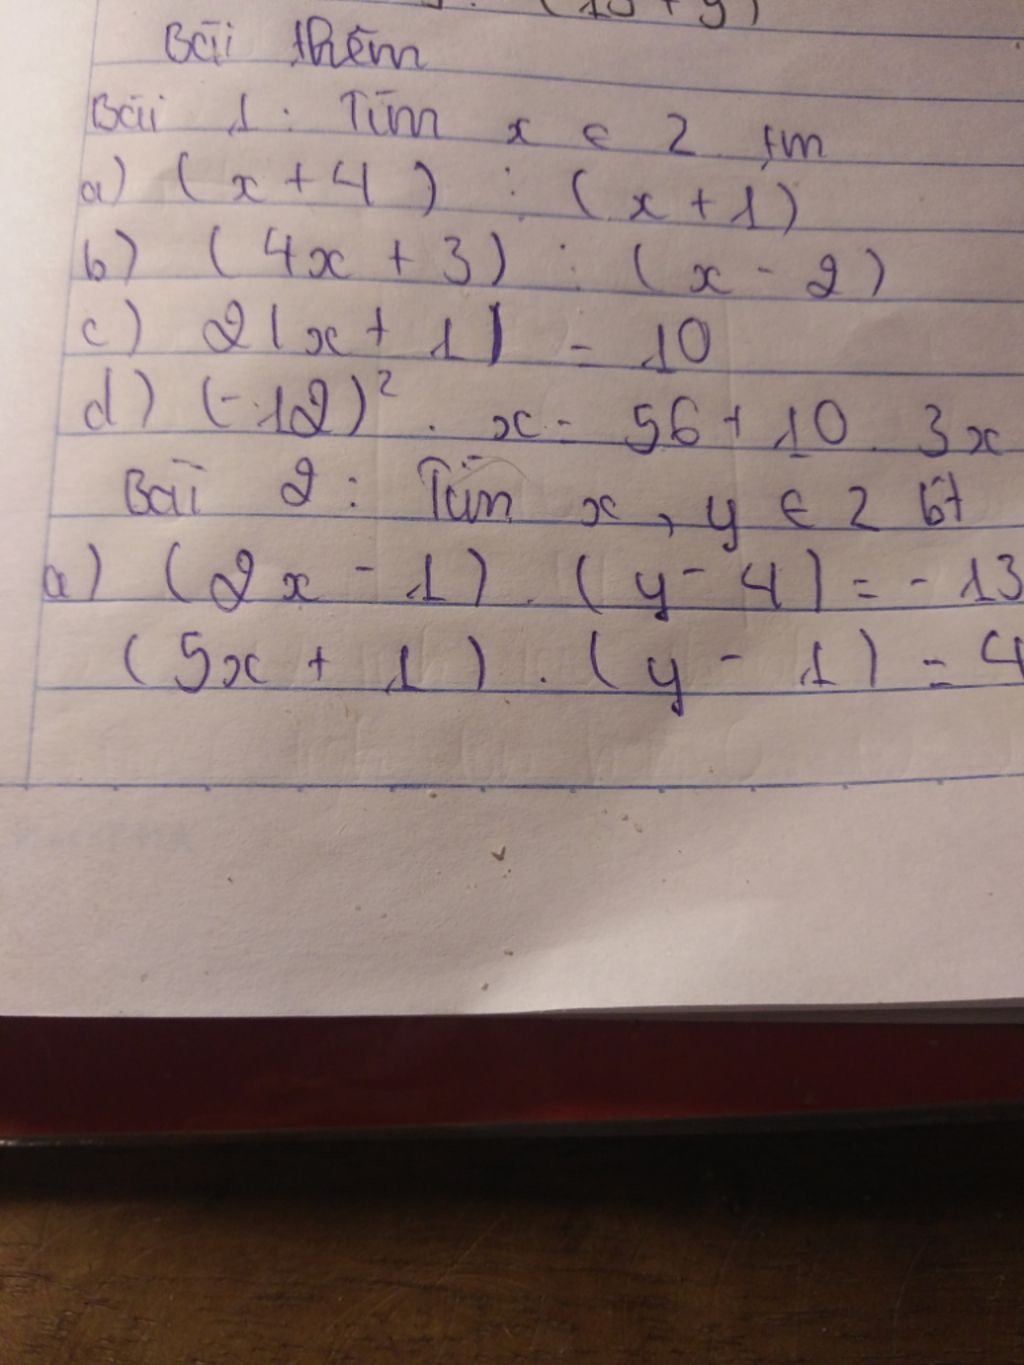 (15 + y)
Bài thêm
Bài 1 : Tìm x ∈ Z t/m
a) (x + 4) ⋮ (x + 1)
b) (4x + 3) ⋮ (x - 2)
c) 2|x + 1| = 10
d) (-12)² . x = 56 + 10 . 3x
Bài 2 : Tìm x , y ∈ Z bt
a) (2x - 1) . (y - 4) = - 13
(5x + 1) . (y - 1) = 4